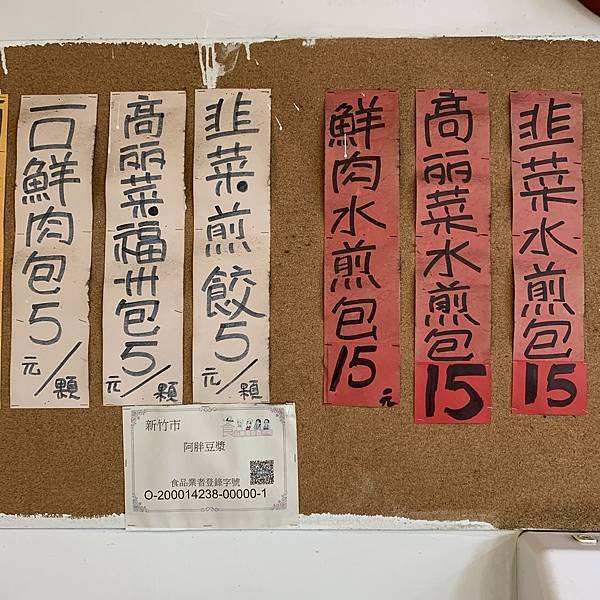 韭菜水煎包15
高丽菜水煎包15
鮮肉水煎包15元
韭菜煎餃5元/顆
高丽菜福州包5元/顆
一口鮮肉包5元/顆
新竹市
阿胖豆漿
食品業者登錄字號
O-200014238-00000-1